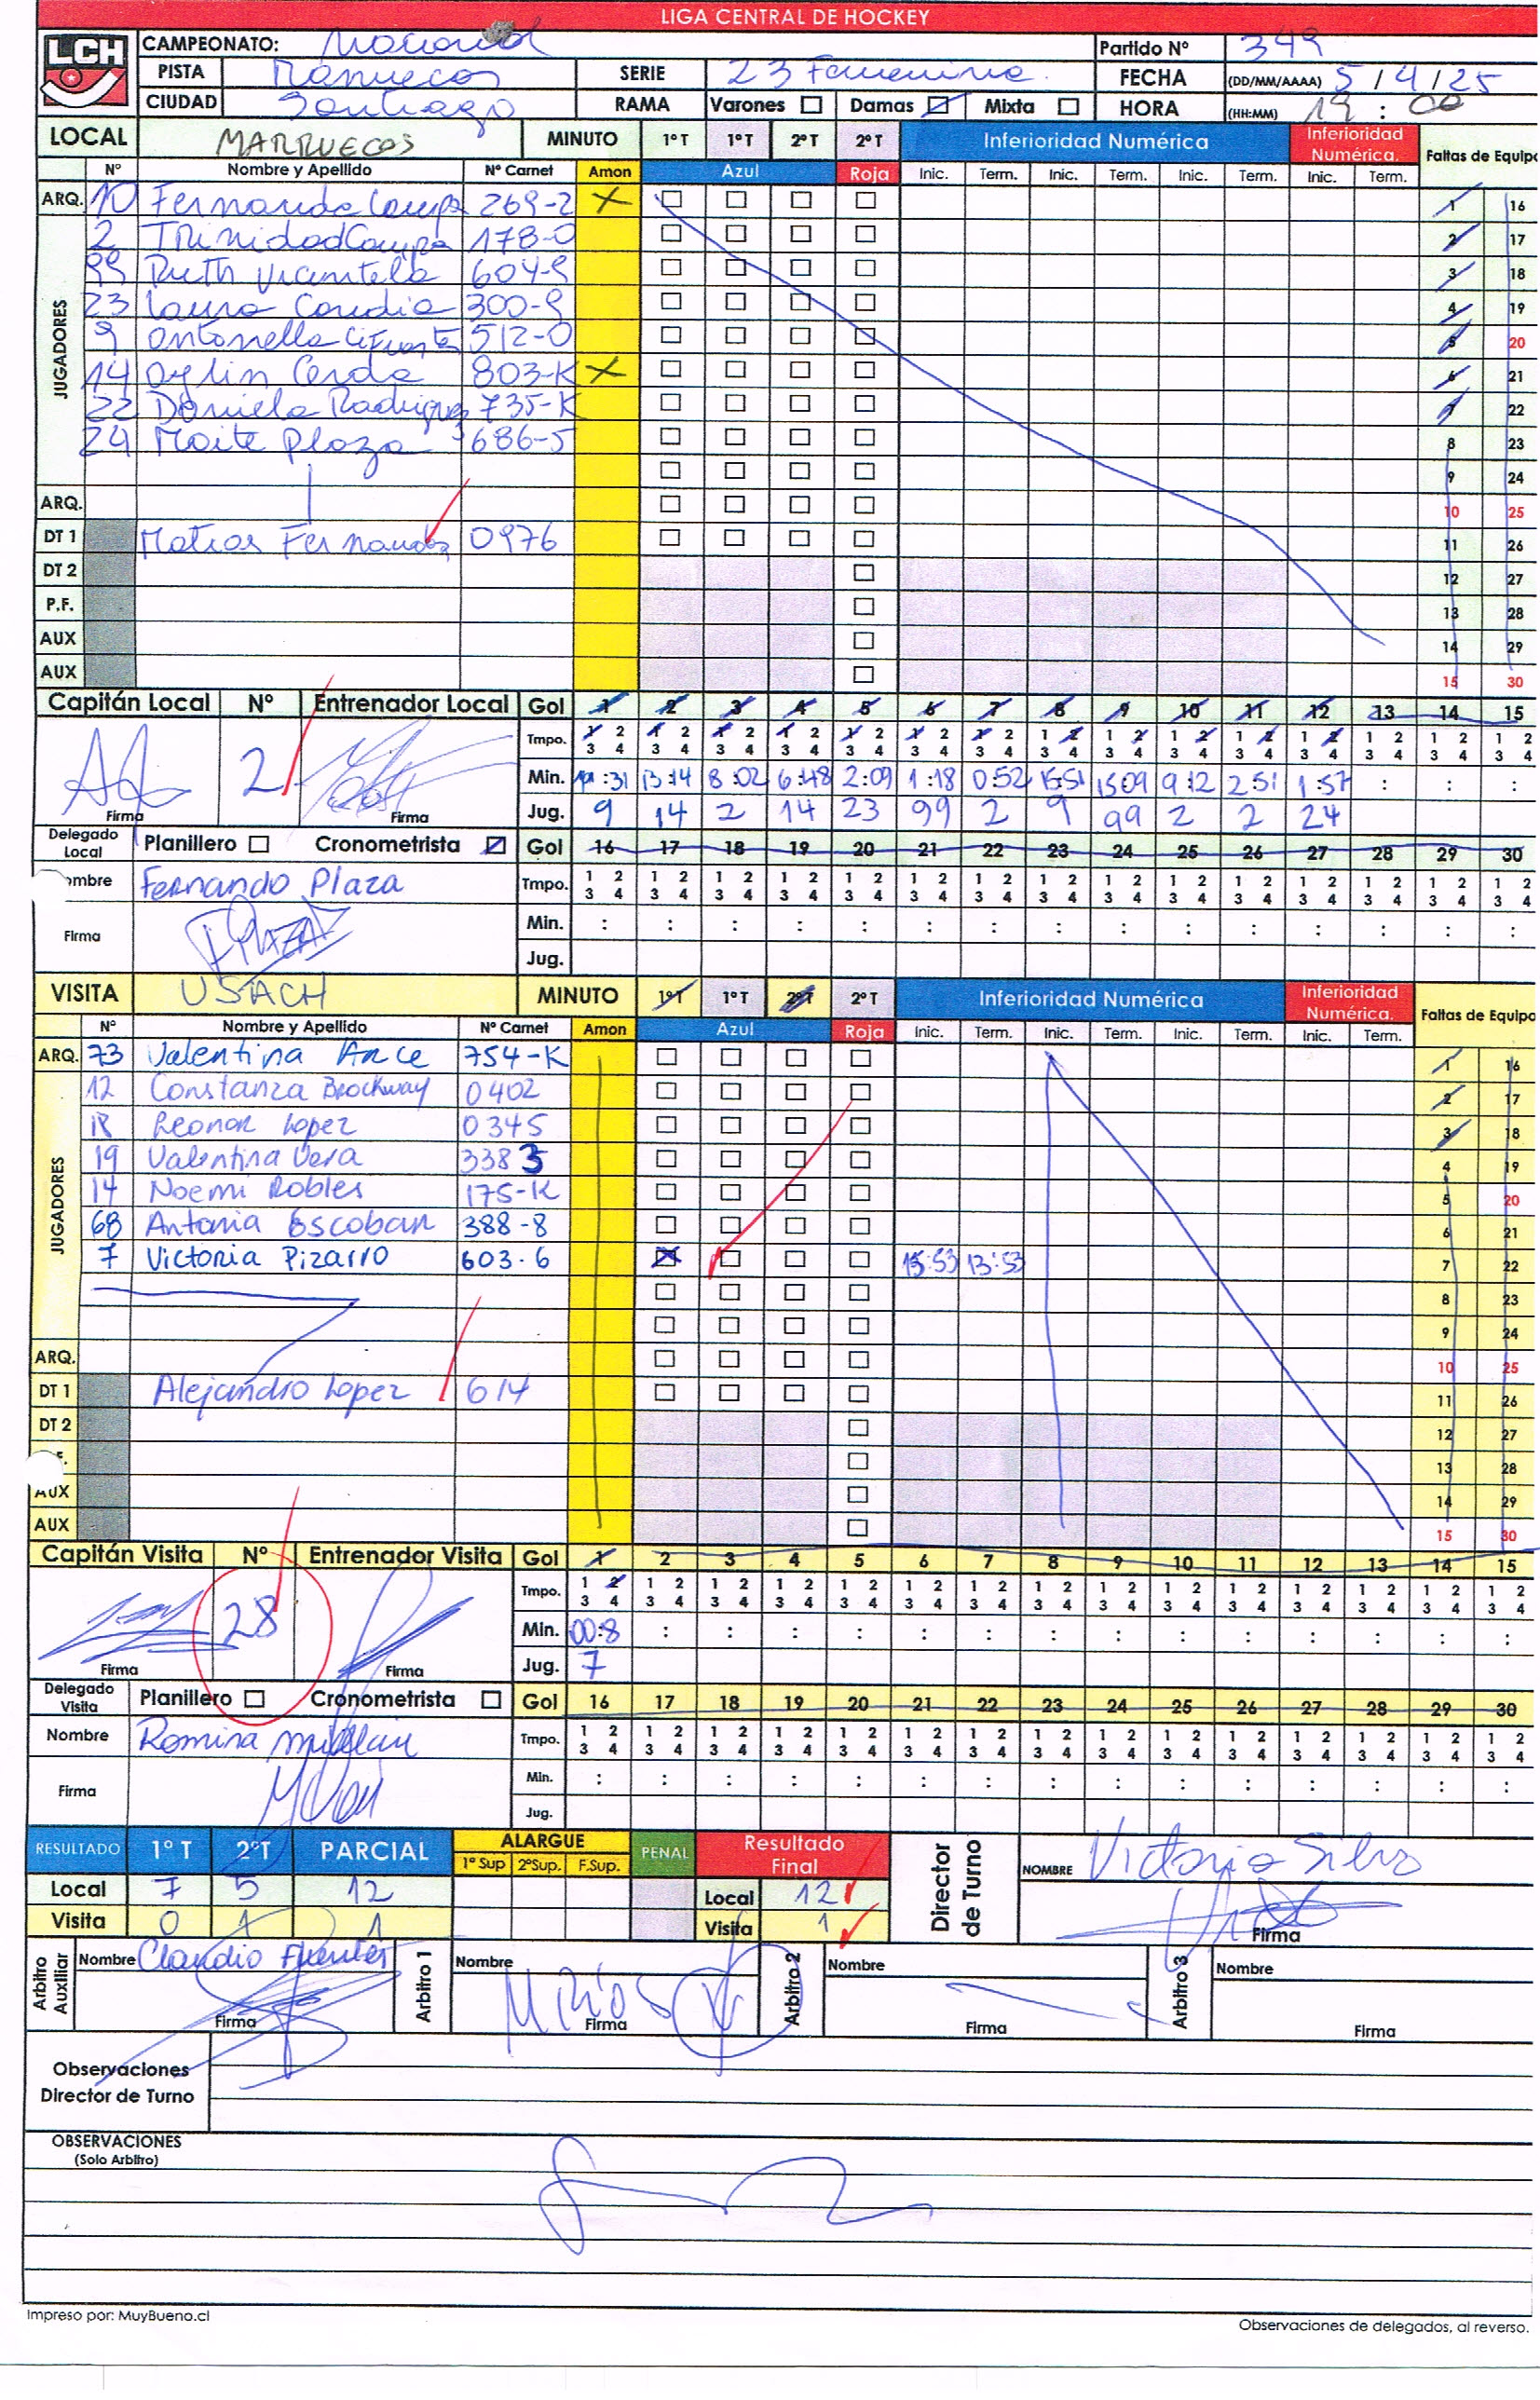 LIGA CENTRAL DE HOCKEY
LCH
CAMPEONATO: Nacional Partido Nº 349
PISTA Marruecos SERIE 23 Femenina. FECHA (DD/MM/AAAA) 5 / 4 / 25
CIUDAD Santiago RAMA Varones Damas Mixta HORA (HH:MM) 19 : 00
LOCAL MARRUECOS MINUTO 1º T 1º T 2º T 2º T Inferioridad Numérica Inferioridad Numérica. Faltas de Equipo
Nº Nombre y Apellido Nº Carnet Amon Azul Roja Inic. Term. Inic. Term. Inic. Term. Inic. Term.
ARQ. 10 Fernanda 269-2 X 1 16
2 Trinidad 178-0 2 17
JUGADORES
99 Ruth Vicentela 604-9 3 18
23 Laura 300-9 4 19
9 Antonella Cifuentes 512-0 5 20
14 Aylin Cerda 803-K X 6 21
22 Daniela Rodriguez 735-K 7 22
24 Maite Plaza 686-5 8 23
9 24
ARQ. 10 25
DT 1 Matias Fernandez 0976 11 26
DT 2 12 27
P.F. 13 28
AUX 14 29
AUX 15 30
Capitán Local Nº Entrenador Local Gol 1 2 3 4 5 6 7 8 9 10 11 12 13 14 15
Tmpo. 1 2 1 2 1 2 1 2 1 2 1 2 1 2 1 2 1 2 1 2 1 2 1 2 1 2 1 2 1 2
3 4 3 4 3 4 3 4 3 4 3 4 3 4 3 4 3 4 3 4 3 4 3 4 3 4 3 4 3 4
2 Min. :31 13:14 8:02 6:48 2:09 1:18 0:52 15:51 15:09 9:12 2:51 1:57 : : :
Firma Firma Jug. 9 14 2 14 23 99 2 9 99 2 2 24
Delegado Local Planillero Cronometrista Gol 16 17 18 19 20 21 22 23 24 25 26 27 28 29 30
Nombre Fernando Plaza Tmpo. 1 2 1 2 1 2 1 2 1 2 1 2 1 2 1 2 1 2 1 2 1 2 1 2 1 2 1 2 1 2
3 4 3 4 3 4 3 4 3 4 3 4 3 4 3 4 3 4 3 4 3 4 3 4 3 4 3 4 3 4
Firma Min. : : : : : : : : : : : : : : :
Jug.
VISITA USACH MINUTO 1º T 1º T 2º T 2º T Inferioridad Numérica Inferioridad Numérica. Faltas de Equipo
Nº Nombre y Apellido Nº Carnet Amon Azul Roja Inic. Term. Inic. Term. Inic. Term. Inic. Term.
ARQ. 73 Valentina Arce 754-K 1 16
12 Constanza Brockway 0402 2 17
18 Leonor Lopez 0345 3 18
JUGADORES
19 Valentina Vera 3383 4 19
14 Noemi Robles 175-K 5 20
68 Antonia Escobar 388-8 6 21
7 Victoria Pizarro 603-6 X 15:53 13:53 7 22
8 23
9 24
ARQ. 10 25
DT 1 Alejandro Lopez 614 11 26
DT 2 12 27
13 28
AUX 14 29
AUX 15 30
Capitán Visita Nº Entrenador Visita Gol 1 2 3 4 5 6 7 8 9 10 11 12 13 14 15
Tmpo. 1 2 1 2 1 2 1 2 1 2 1 2 1 2 1 2 1 2 1 2 1 2 1 2 1 2 1 2 1 2
3 4 3 4 3 4 3 4 3 4 3 4 3 4 3 4 3 4 3 4 3 4 3 4 3 4 3 4 3 4
28 Min. 00:8 : : : : : : : : : : : : : :
Firma Firma Jug. 7
Delegado Visita Planillero Cronometrista Gol 16 17 18 19 20 21 22 23 24 25 26 27 28 29 30
Nombre Romina Millan Tmpo. 1 2 1 2 1 2 1 2 1 2 1 2 1 2 1 2 1 2 1 2 1 2 1 2 1 2 1 2 1 2
3 4 3 4 3 4 3 4 3 4 3 4 3 4 3 4 3 4 3 4 3 4 3 4 3 4 3 4 3 4
Firma Min. : : : : : : : : : : : : : : :
Jug.
RESULTADO 1º T 2ºT PARCIAL ALARGUE 1º Sup 2ºSup. F.Sup. PENAL Resultado Final Director de Turno NOMBRE Victoria Silva
Local 7 5 12 Local 12
Visita 0 1 1 Visita 1 Firma
Arbitro Auxiliar Nombre Claudio Fuentes Arbitro 1 Nombre M Rios Arbitro 2 Nombre Arbitro 3 Nombre
Firma Firma Firma Firma
Observaciones
Director de Turno
OBSERVACIONES
(Solo Arbitro)
Impreso por: MuyBueno.cl
Observaciones de delegados, al reverso.